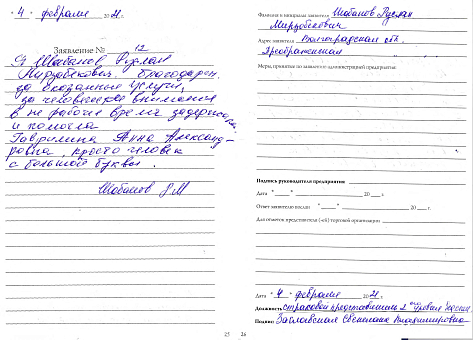 "4" февраля 2021.
Заявление № 12
Я Шабанов Руслан
Мирзубекович, благодарен
за оказанные услуги,
за человеческое внимание
в не рабочее время задержалась
и помогла
Гаврилина Анна Александ-
ровна, просто человек
с большой буквы.
Шабанов Р.М
25
Фамилия и инициалы заявителя Шабанов Руслан
Мирзубекович
Адрес заявителя Волгоградская обл.
Преображенская
Меры, принятые по заявлению администрацией предприятия:
Подпись руководителя предприятия
Дата " " 20 г.
Ответ заявителю послан " " 20 г.
Для отметок представителя (-ей) торговой организации
Дата "4" февраля 2021.
Должность страховой представитель 2 ого уровня
Подпись Светлана Владимировна
26